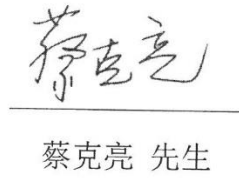 蔡克亮
蔡克亮 先生